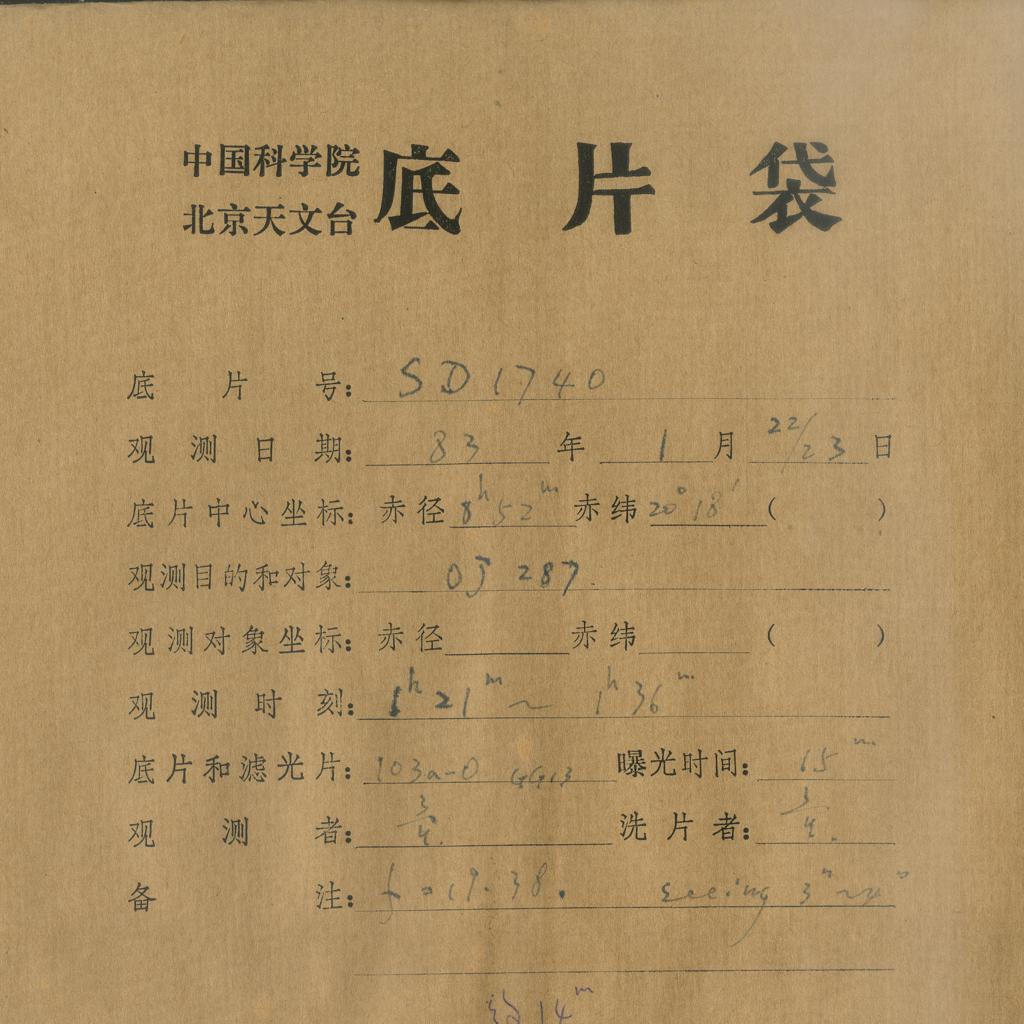 中国科学院
北京天文台
底片袋
底片号: SD1740
观测日期: 83年 1月 22/23日
底片中心坐标: 赤径 8h 52m 赤纬 20° 18′ ( )
观测目的和对象: OJ 287.
观测对象坐标: 赤径 赤纬 ( )
观测时刻: 1h 21m ~ 1h 36m
底片和滤光片: 103a-O GG13 曝光时间: 15m
观测者: 洗片者:
备注: f = 19.38. seeing 3″~4″
14m